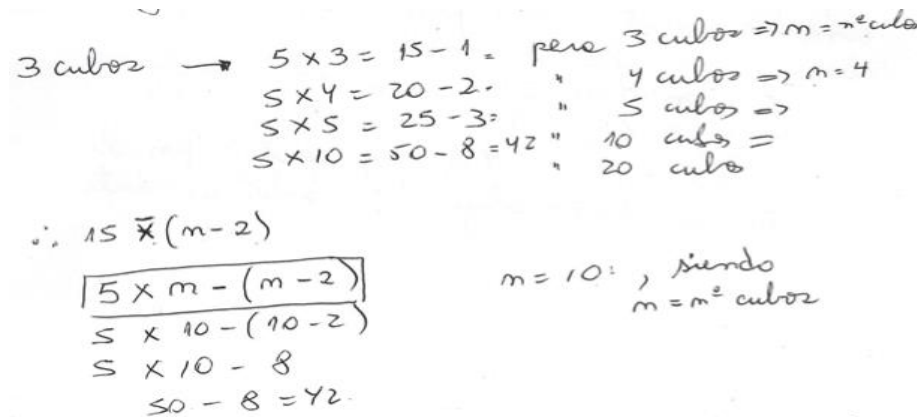 3 cubos → 5 x 3 = 15 - 1 = para 3 cubos => n = nº cubos
5 x 4 = 20 - 2. " 4 cubos => n = 4
5 x 5 = 25 - 3: " 5 cubos =>
5 x 10 = 50 - 8 = 42 " 10 cubos =
" 20 cubos
∴ 15 (n - 2)
5 x n - (n - 2)
5 x 10 - (10 - 2) n = 10: , siendo
n = nº cubos
5 x 10 - 8
50 - 8 = 42.